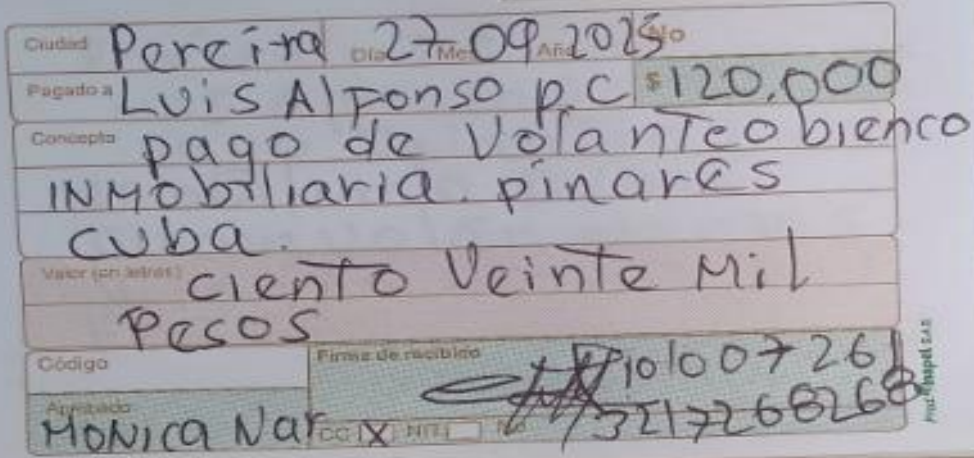 Ciudad Pereira Día 27 Mes 09 Año 2025 No
Pagado a Luis Alfonso p.C $ 120,000
Concepto pago de Volanteo bienco
INMobiliaria. pinares
cuba.
Valor (en letras) ciento Veinte Mil
Pesos
Código Firma de recibido 10100726
3217268268
Aprobado
MONICA Nar CC X NIT No